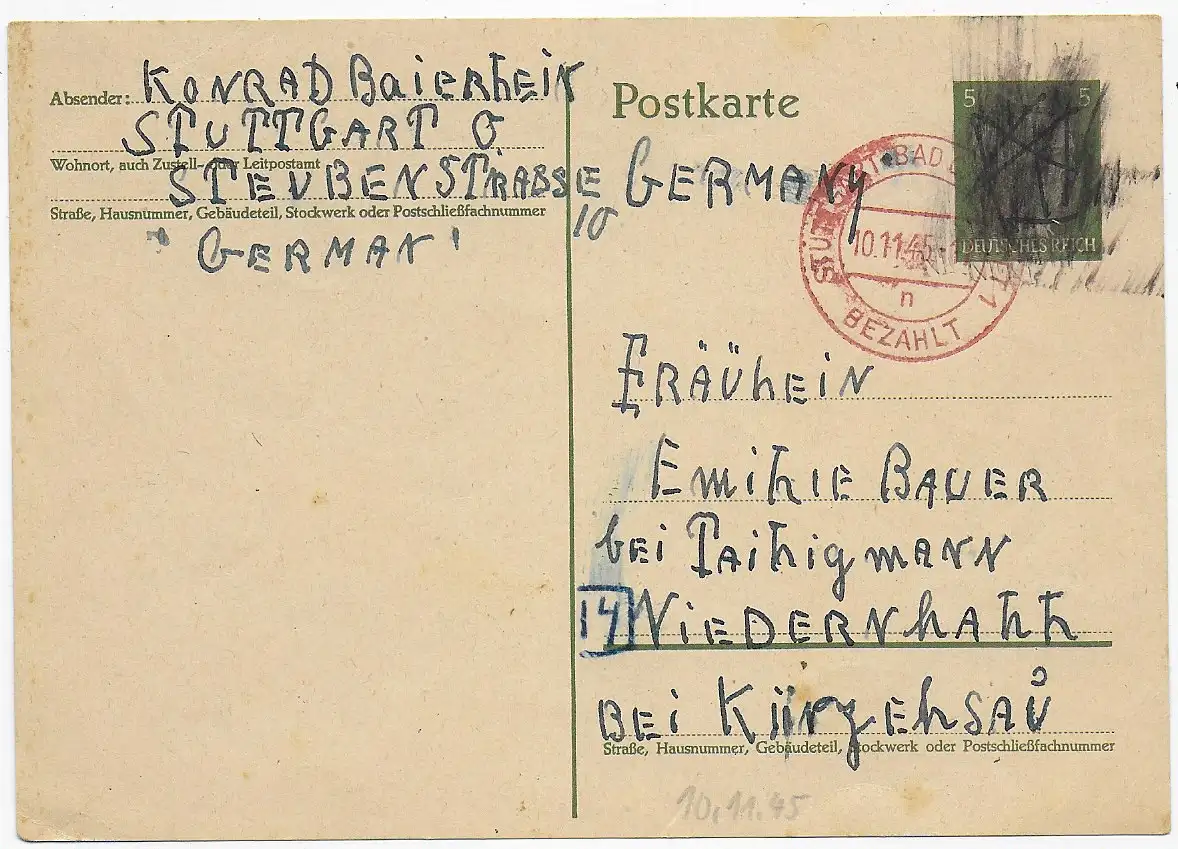 Absender: KONRAD Baierhein
STUTTGART O
Wohnort, auch Zustell- oder Leitpostamt
STEUBENSTRASSE
10
Straße, Hausnummer, Gebäudeteil, Stockwerk oder Postschließfachnummer
"GERMAN"
Postkarte
GERMANY
5 5
DEUTSCHES REICH
STUTTGART-BAD
10.11.45
n
BEZAHLT
FRÄÜhEiN
EmihiE BAUER
bei
14 NiEDERNhAhh
BEi KürzEhSAU
Straße, Hausnummer, Gebäudeteil, Stockwerk oder Postschließfachnummer
10.11.45